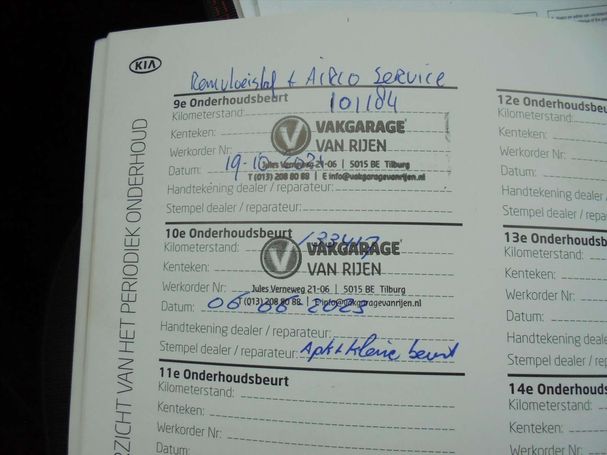 KIA
Remvloeistof + AIRCO Service
9e Onderhoudsbeurt
101184
Kilometerstand:
Kenteken:
VAKGARAGE
VAN RIJEN
Werkorder Nr:
Jules Verneweg 21-06 | 5015 BE Tilburg
Datum: 19-10-2021
T (013) 208 80 88 | E info@vakgaragevanrijen.nl
Handtekening dealer / reparateur:
Stempel dealer / reparateur:
10e Onderhoudsbeurt
Kilometerstand:
VAKGARAGE
Kenteken:
VAN RIJEN
Werkorder Nr:
Jules Verneweg 21-06 | 5015 BE Tilburg
Datum: 06-06-2023
T (013) 208 80 88 | E info@vakgaragevanrijen.nl
Handtekening dealer / reparateur:
Stempel dealer / reparateur: Apk + kleine beurt
11e Onderhoudsbeurt
Kilometerstand:
Kenteken:
Werkorder Nr:
Datum:
12e Onderhoudsbeu
Kilometerstand:
Kenteken:
Werkorder Nr:
Datum:
Handtekening deale
Stempel dealer / re
13e Onderhoudsb
Kilometerstand:
Kenteken:
Werkorder Nr:
Datum:
Handtekening deal
Stempel dealer / re
14e Onderhouds
Kilometerstand:
Kenteken:
Werkorder Nr:
RZICHT VAN HET PERIODIEK ONDERHOUD